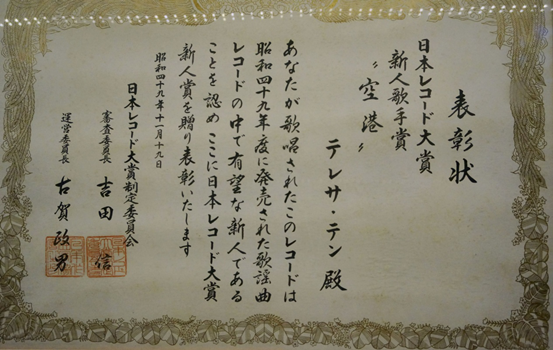 表彰状
日本レコード大賞
新人歌手賞
〝空港〟
テレサ・テン殿
あなたが歌唱されたこのレコードは
昭和四十九年度に発売された歌謡曲
レコードの中で有望な新人である
ことを認めここに日本レコード大賞
新人賞を贈り表彰いたします
昭和四十九年十一月十九日
日本レコード大賞制定委員会
審査委員長 吉田信
運営委員長 古賀政男